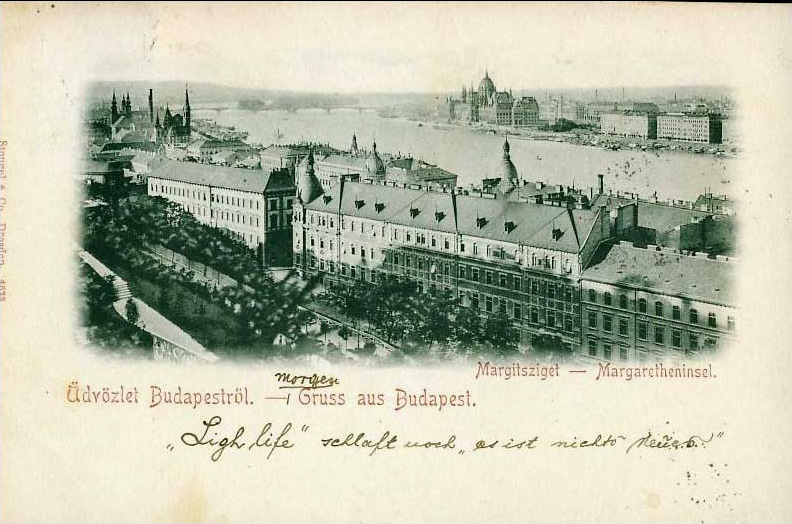 Margitsziget — Margaretheninsel.
morgen
Üdvözlet Budapestről. — Gruss aus Budapest.
„Ligh life" schlaft noch „es ist nichts neues."
Stengel & Co., Dresden.